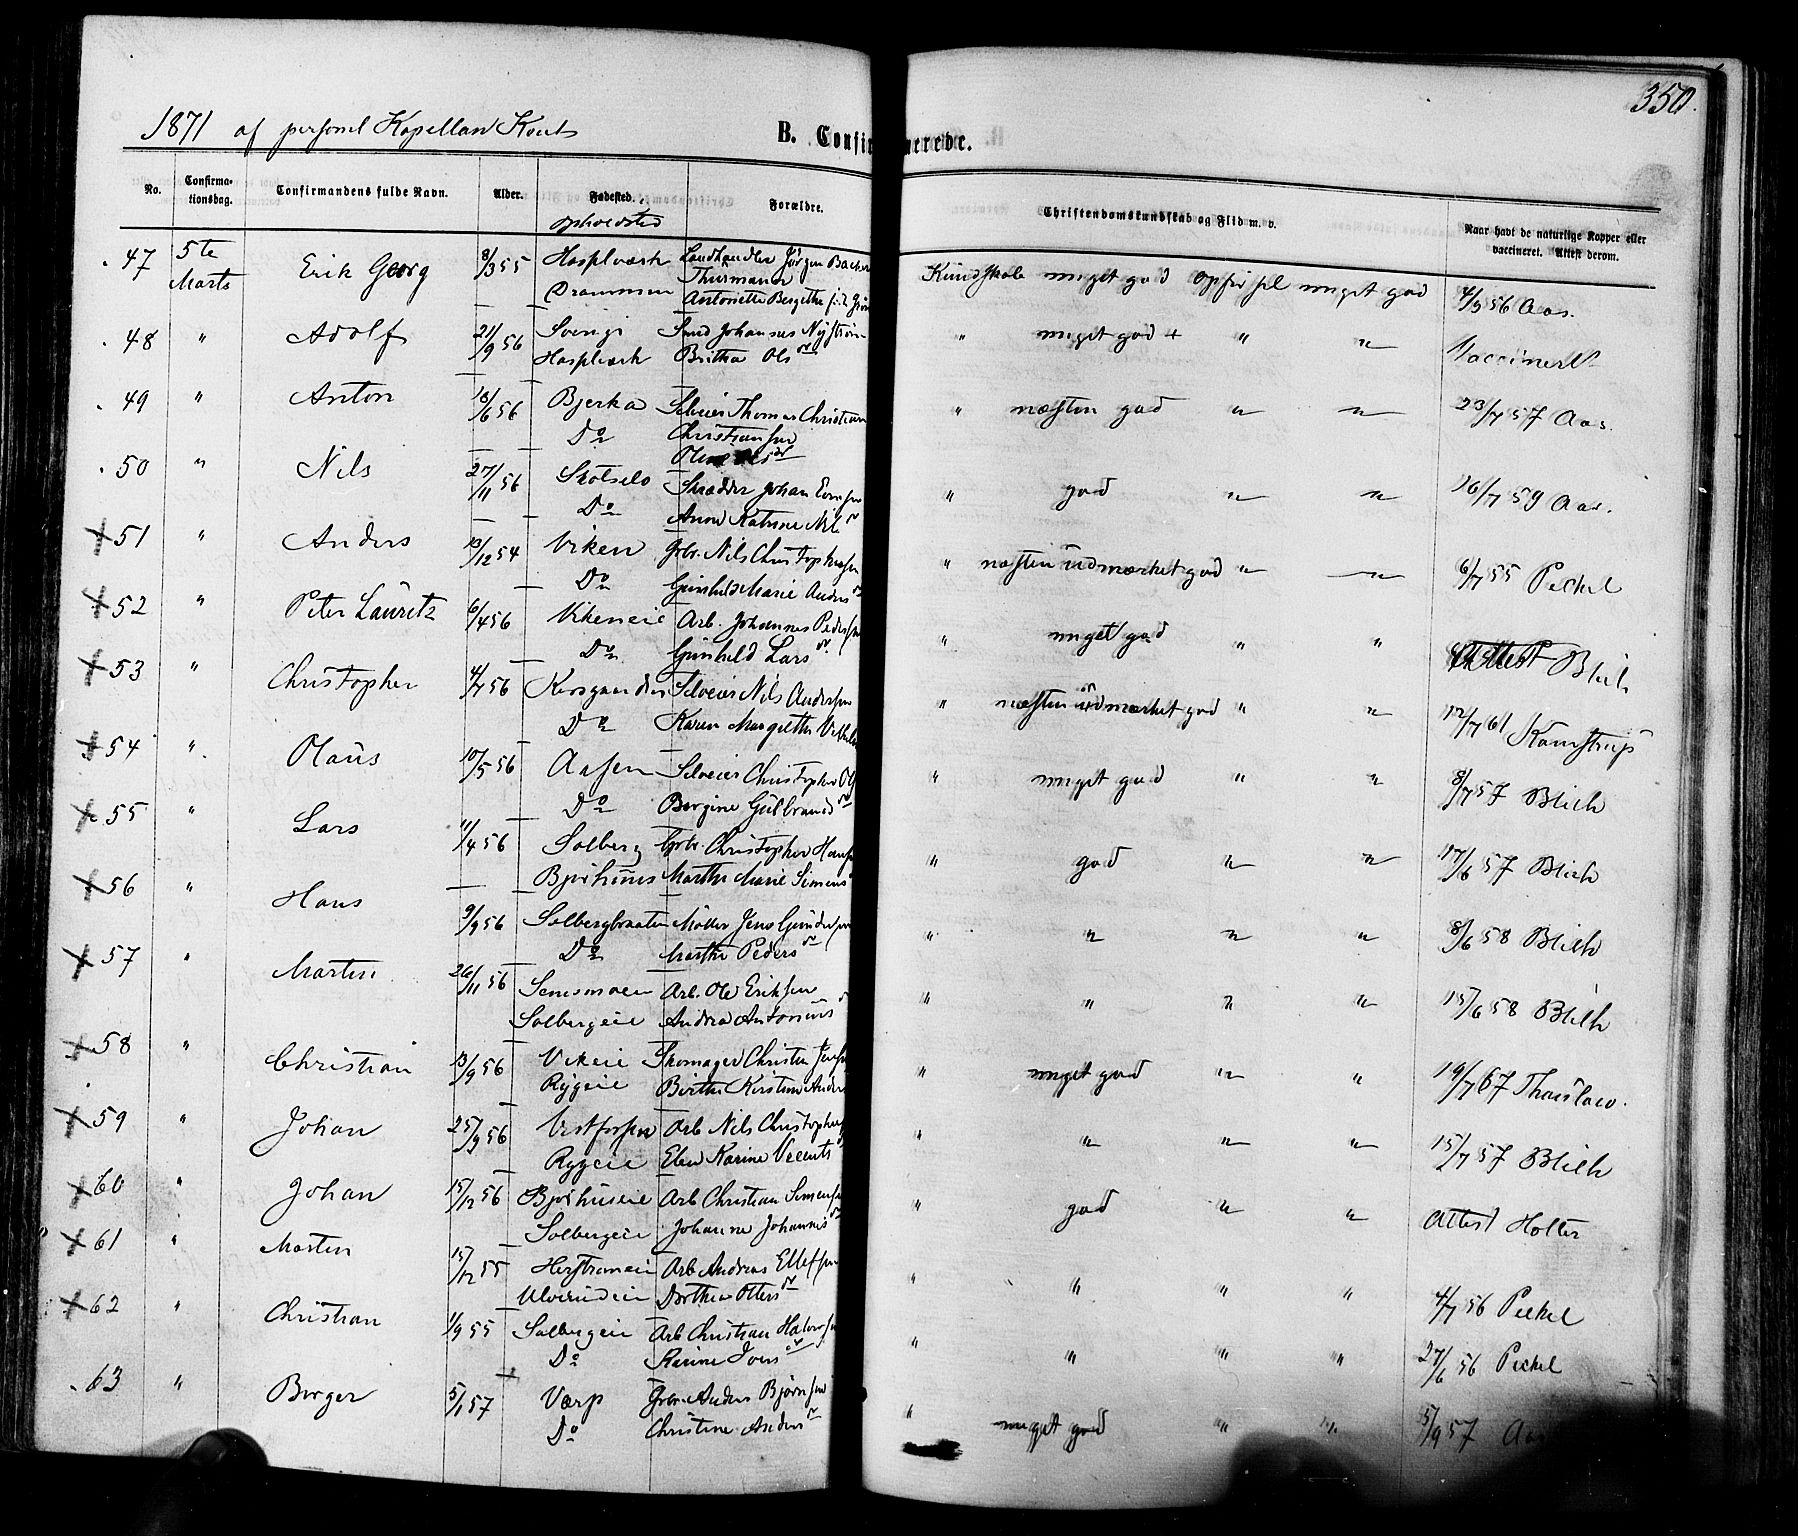 350.
1871 af personel Kapellan
B. Confirmerede.
No. Confirmationsdag. Confirmandens fulde Navn. Alder. Fødested. Forældre. Christendomskundskab og Flid m. v. Naar havt de naturlige Kopper eller vaccineret. Attest derom.
opholdsted
47 5te Marts Erik Georg 8/3 55 Hasplværk Landhandler Jørgen Backer Kundskab meget god Opførsel meget god 4/9 56 Aas.
Drammen Thurmann
Antonette Bergethe
48 " Adolf 21/9 56 Smed Johannes Nystrøm " meget god + " " Vaccineret
Hasplværk Britha Ols dr
49 " Anton 18/6 56 Bjerka Selveier Thomas Christian " næsten god " " 23/7 57 Aas.
Do Christiansen
50 " Nils 27/11 56 Skotselv Skrædder Johan Evensen " god " " 16/7 59 Aas.
Do Anne Katrine Nils dr
51 " Anders 13/12 54 Viken Grbr. Nils Christophersen " næsten udmærket god " " 6/7 55 Peckel
Do Gunhild Marie Anders dr
52 " Peter Lauritz 6/4 56 Vikeneie Arb. Johannes Pedersen " meget god " " Blich
Do Gunhild Lars dr
53 " Christopher 4/7 56 Selveier Nils Andersen " næsten udmærket god " " 12/7 61 Kamstrup
Do Karen Margrethe
54 " Olaus 10/5 56 Aasen Selveier Christopher " meget god " " 8/7 57 Blich
Do Bergine Gulbrands dr
55 " Lars 11/4 56 Solberg Grbr. Christopher Hansen " god " " 17/6 57 Blich
Bjørhuus Marthe Marie Simens
56 " Hans 9/9 56 Solbergbraaten Møller Jens Gundersen " " " " 8/6 58 Blich
Do Marthe Peders dr
57 " Martin 26/11 56 Arb. Ole Eriksen " " " " 15/6 58 Blich
Solbergeie Andrea Antonius dr
58 " Christian 13/9 56 Vikeie Skomager Christen Jensen " meget god " " 19/7 67 Thaulow.
Rygeie Birthe Kirstine Anders
59 " Johan 25/9 56 Vestfossen Arb Nils Christophersen " " " " 15/7 57 Blich
Rygeie Elen Karine
60 " Johan 15/12 56 Bjørhuseie Arb Christian Simensen " god " " Attest Holter
Solbergeie Johanne Johannis dr
61 " Martin 15/12 55 Arb Andreas Ellefsen " " " " 4/7 56 Peckel
Dorthea Otters dr
62 " Christian 1/9 55 Solbergeie Arb Christian Halvorsen " " " " 27/6 56 Peckel
Do Karine Ivers dr
63 " Børger 5/1 57 Værp Grbr. Anders Bjørnsen " meget god " " 15/9 57 Aas
Do Christine Anders dr